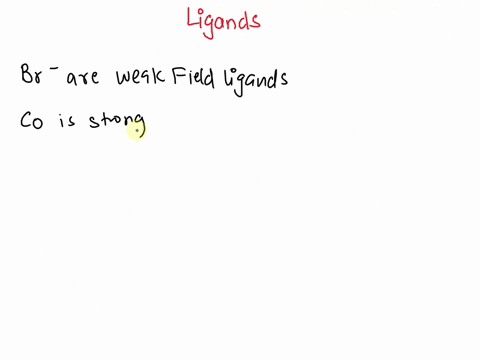 Ligands
Br⁻ are weak Field ligands
Co is strong